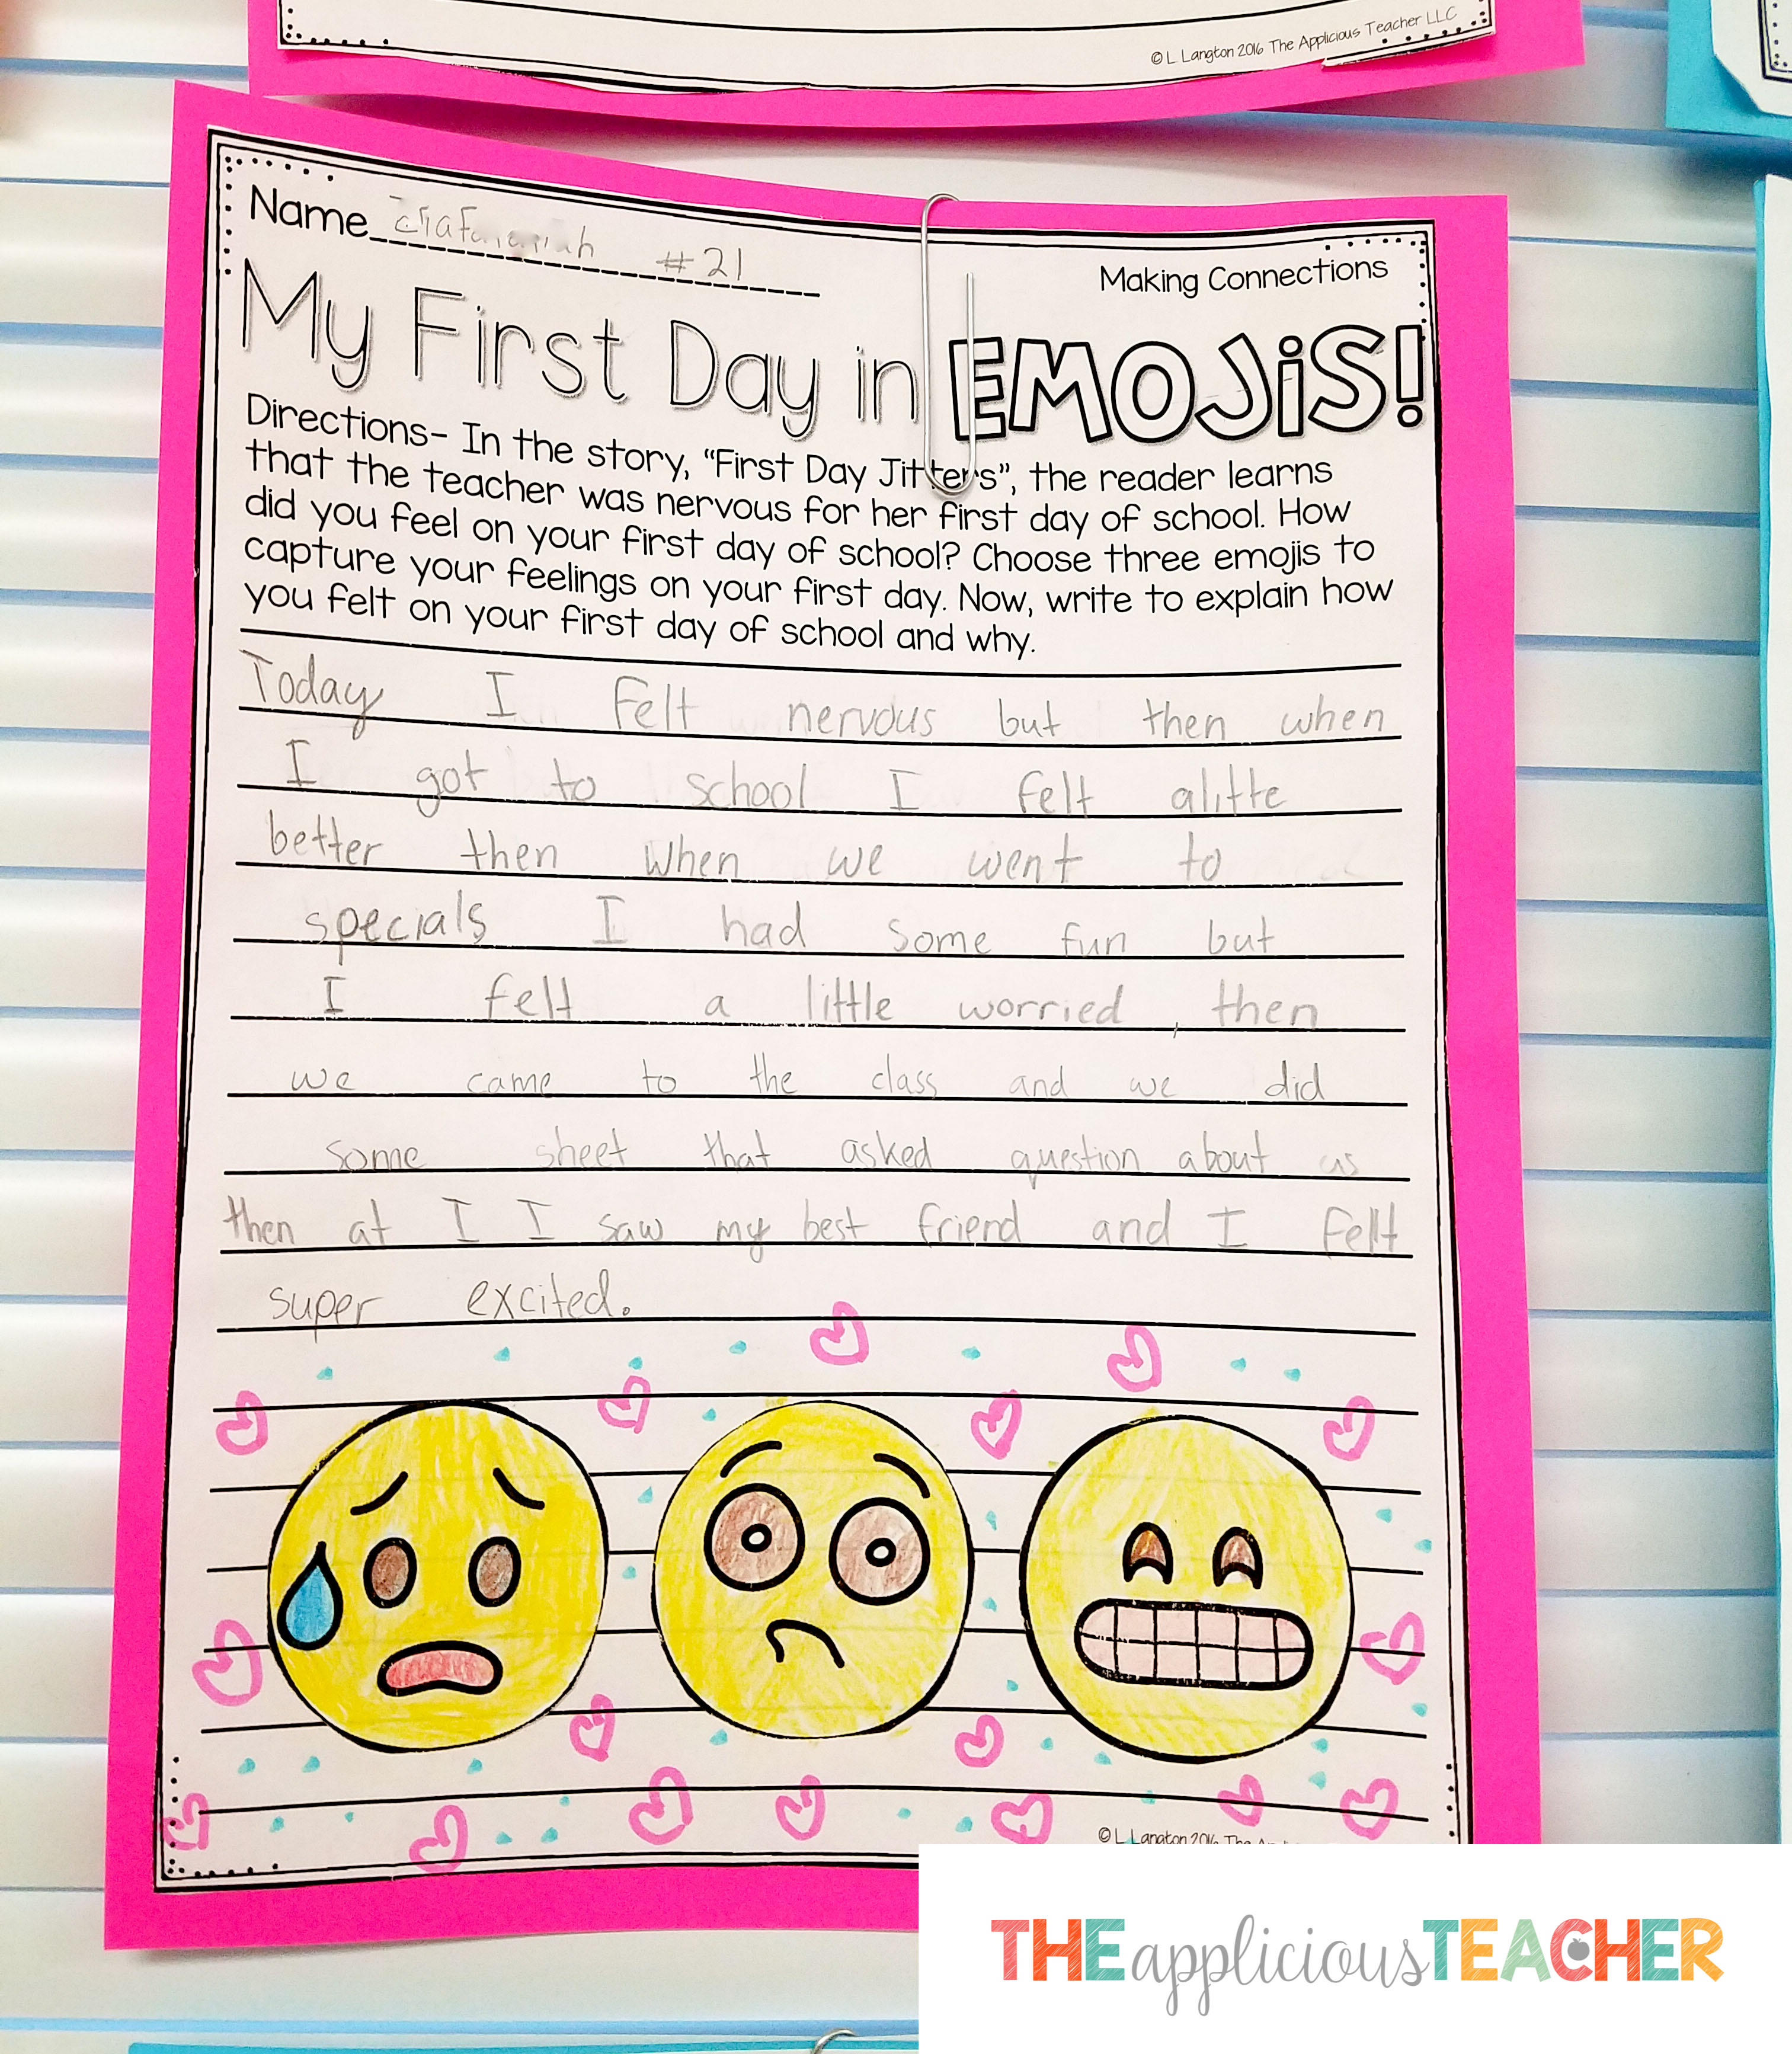 © L Langton 2016 The Applicious Teacher LLC
Name #21
Making Connections
My First Day in EMOJiS!
Directions- In the story, “First Day Jitters”, the reader learns
that the teacher was nervous for her first day of school. How
did you feel on your first day of school? Choose three emojis to
capture your feelings on your first day. Now, write to explain how
you felt on your first day of school and why.
Today I felt nervous but then when
I got to school I felt alitte
better then when we went to
specials I had some fun but
I felt a little worried, then
we came to the class and we did
some sheet that asked question about us
then at I I saw my best friend and I felt
super excited.
© L Langton 2016 The
THE applicious TEACHER